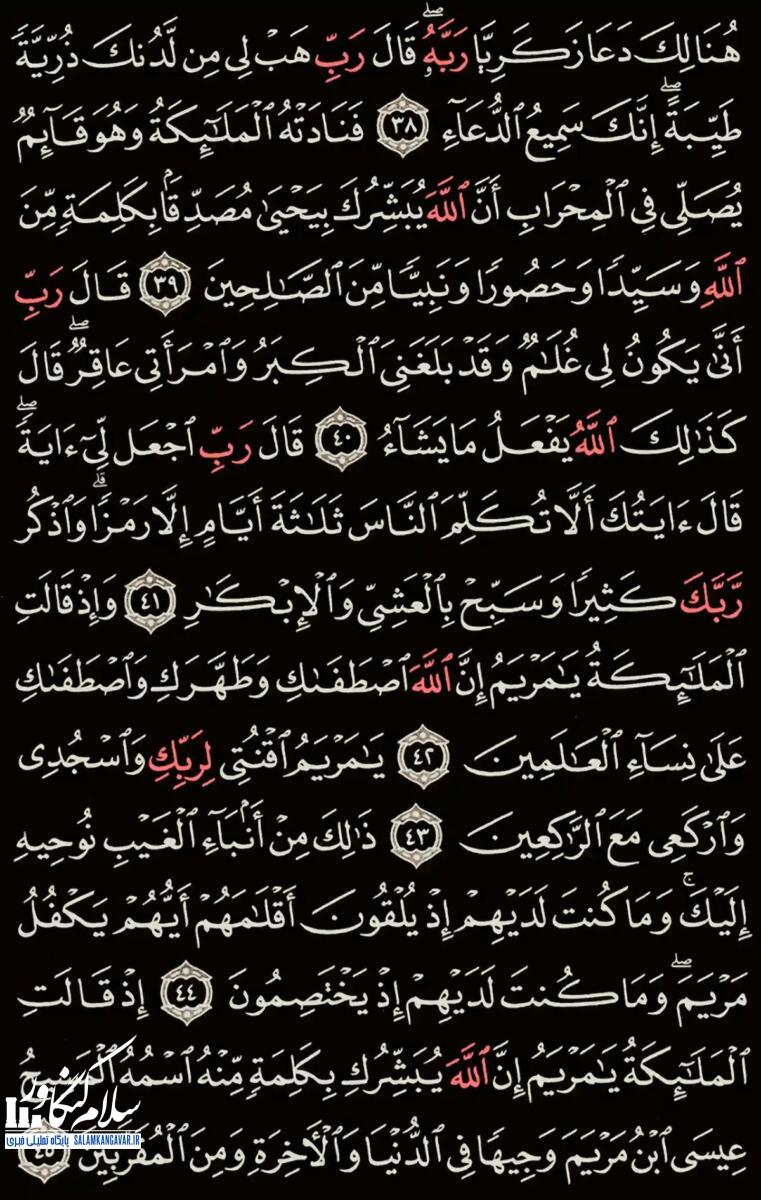 هُنَالِكَ دَعَا زَكَرِيَّا رَبَّهُۥۖ قَالَ رَبِّ هَبۡ لِي مِن لَّدُنكَ ذُرِّيَّةٗ
طَيِّبَةًۖ إِنَّكَ سَمِيعُ ٱلدُّعَآءِ ٣٨ فَنَادَتۡهُ ٱلۡمَلَٰٓئِكَةُ وَهُوَ قَآئِمٞ
يُصَلِّي فِي ٱلۡمِحۡرَابِ أَنَّ ٱللَّهَ يُبَشِّرُكَ بِيَحۡيَىٰ مُصَدِّقَۢا بِكَلِمَةٖ مِّنَ
ٱللَّهِ وَسَيِّدٗا وَحَصُورٗا وَنَبِيّٗا مِّنَ ٱلصَّٰلِحِينَ ٣٩ قَالَ رَبِّ
أَنَّىٰ يَكُونُ لِي غُلَٰمٞ وَقَدۡ بَلَغَنِيَ ٱلۡكِبَرُ وَٱمۡرَأَتِي عَاقِرٞۖ قَالَ
كَذَٰلِكَ ٱللَّهُ يَفۡعَلُ مَا يَشَآءُ ٤٠ قَالَ رَبِّ ٱجۡعَل لِّيٓ ءَايَةٗۖ
قَالَ ءَايَتُكَ أَلَّا تُكَلِّمَ ٱلنَّاسَ ثَلَٰثَةَ أَيَّامٍ إِلَّا رَمۡزٗاۗ وَٱذۡكُر
رَّبَّكَ كَثِيرٗا وَسَبِّحۡ بِٱلۡعَشِيِّ وَٱلۡإِبۡكَٰرِ ٤١ وَإِذۡ قَالَتِ
ٱلۡمَلَٰٓئِكَةُ يَٰمَرۡيَمُ إِنَّ ٱللَّهَ ٱصۡطَفَىٰكِ وَطَهَّرَكِ وَٱصۡطَفَىٰكِ
عَلَىٰ نِسَآءِ ٱلۡعَٰلَمِينَ ٤٢ يَٰمَرۡيَمُ ٱقۡنُتِي لِرَبِّكِ وَٱسۡجُدِي
وَٱرۡكَعِي مَعَ ٱلرَّٰكِعِينَ ٤٣ ذَٰلِكَ مِنۡ أَنۢبَآءِ ٱلۡغَيۡبِ نُوحِيهِ
إِلَيۡكَۚ وَمَا كُنتَ لَدَيۡهِمۡ إِذۡ يُلۡقُونَ أَقۡلَٰمَهُمۡ أَيُّهُمۡ يَكۡفُلُ
مَرۡيَمَۖ وَمَا كُنتَ لَدَيۡهِمۡ إِذۡ يَخۡتَصِمُونَ ٤٤ إِذۡ قَالَتِ
ٱلۡمَلَٰٓئِكَةُ يَٰمَرۡيَمُ إِنَّ ٱللَّهَ يُبَشِّرُكِ بِكَلِمَةٖ مِّنۡهُ ٱسۡمُهُ ٱلۡمَسِيحُ
عِيسَى ٱبۡنُ مَرۡيَمَ وَجِيهٗا فِي ٱلدُّنۡيَا وَٱلۡأٓخِرَةِ وَمِنَ ٱلۡمُقَرَّبِينَ ٤٥
سلام کنگاور
پایگاه تحلیلی خبری SALAMKANGAVAR.IR